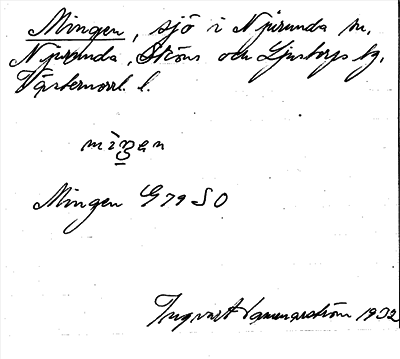 Mingen, sjö i Njurunda sn.
Njurunda, Sköns och Ljustorps tg.
Västernorrl. l.
mi̱ŋen
Mingen G79 SO
Ingvart Hammarström 1932